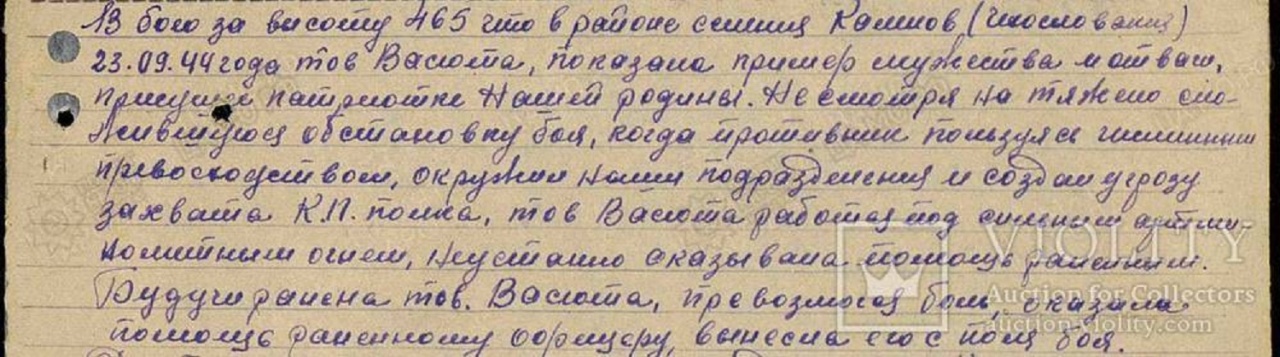 В бою за высоту 465 что в районе селища Калинов (Чехословакия)
23.09.44 года тов Васюта, показала пример мужества и отваги,
присущей патриотке Нашей родины. Не смотря на тяжело сло-
жившуюся обстановку боя, когда противник пользуясь численным
превосходством, окружил наши подразделения и создал угрозу
захвата К.П. полка, тов Васюта работая под сильным артми-
нометным огнем, неустанно оказывала помощь раненным.
Будучи ранена тов. Васюта, превозмогая боль, оказала
помощь раненному офицеру, вынесла его с поля боя.
VIOLITY
Auction for Collectors
auction.violity.com